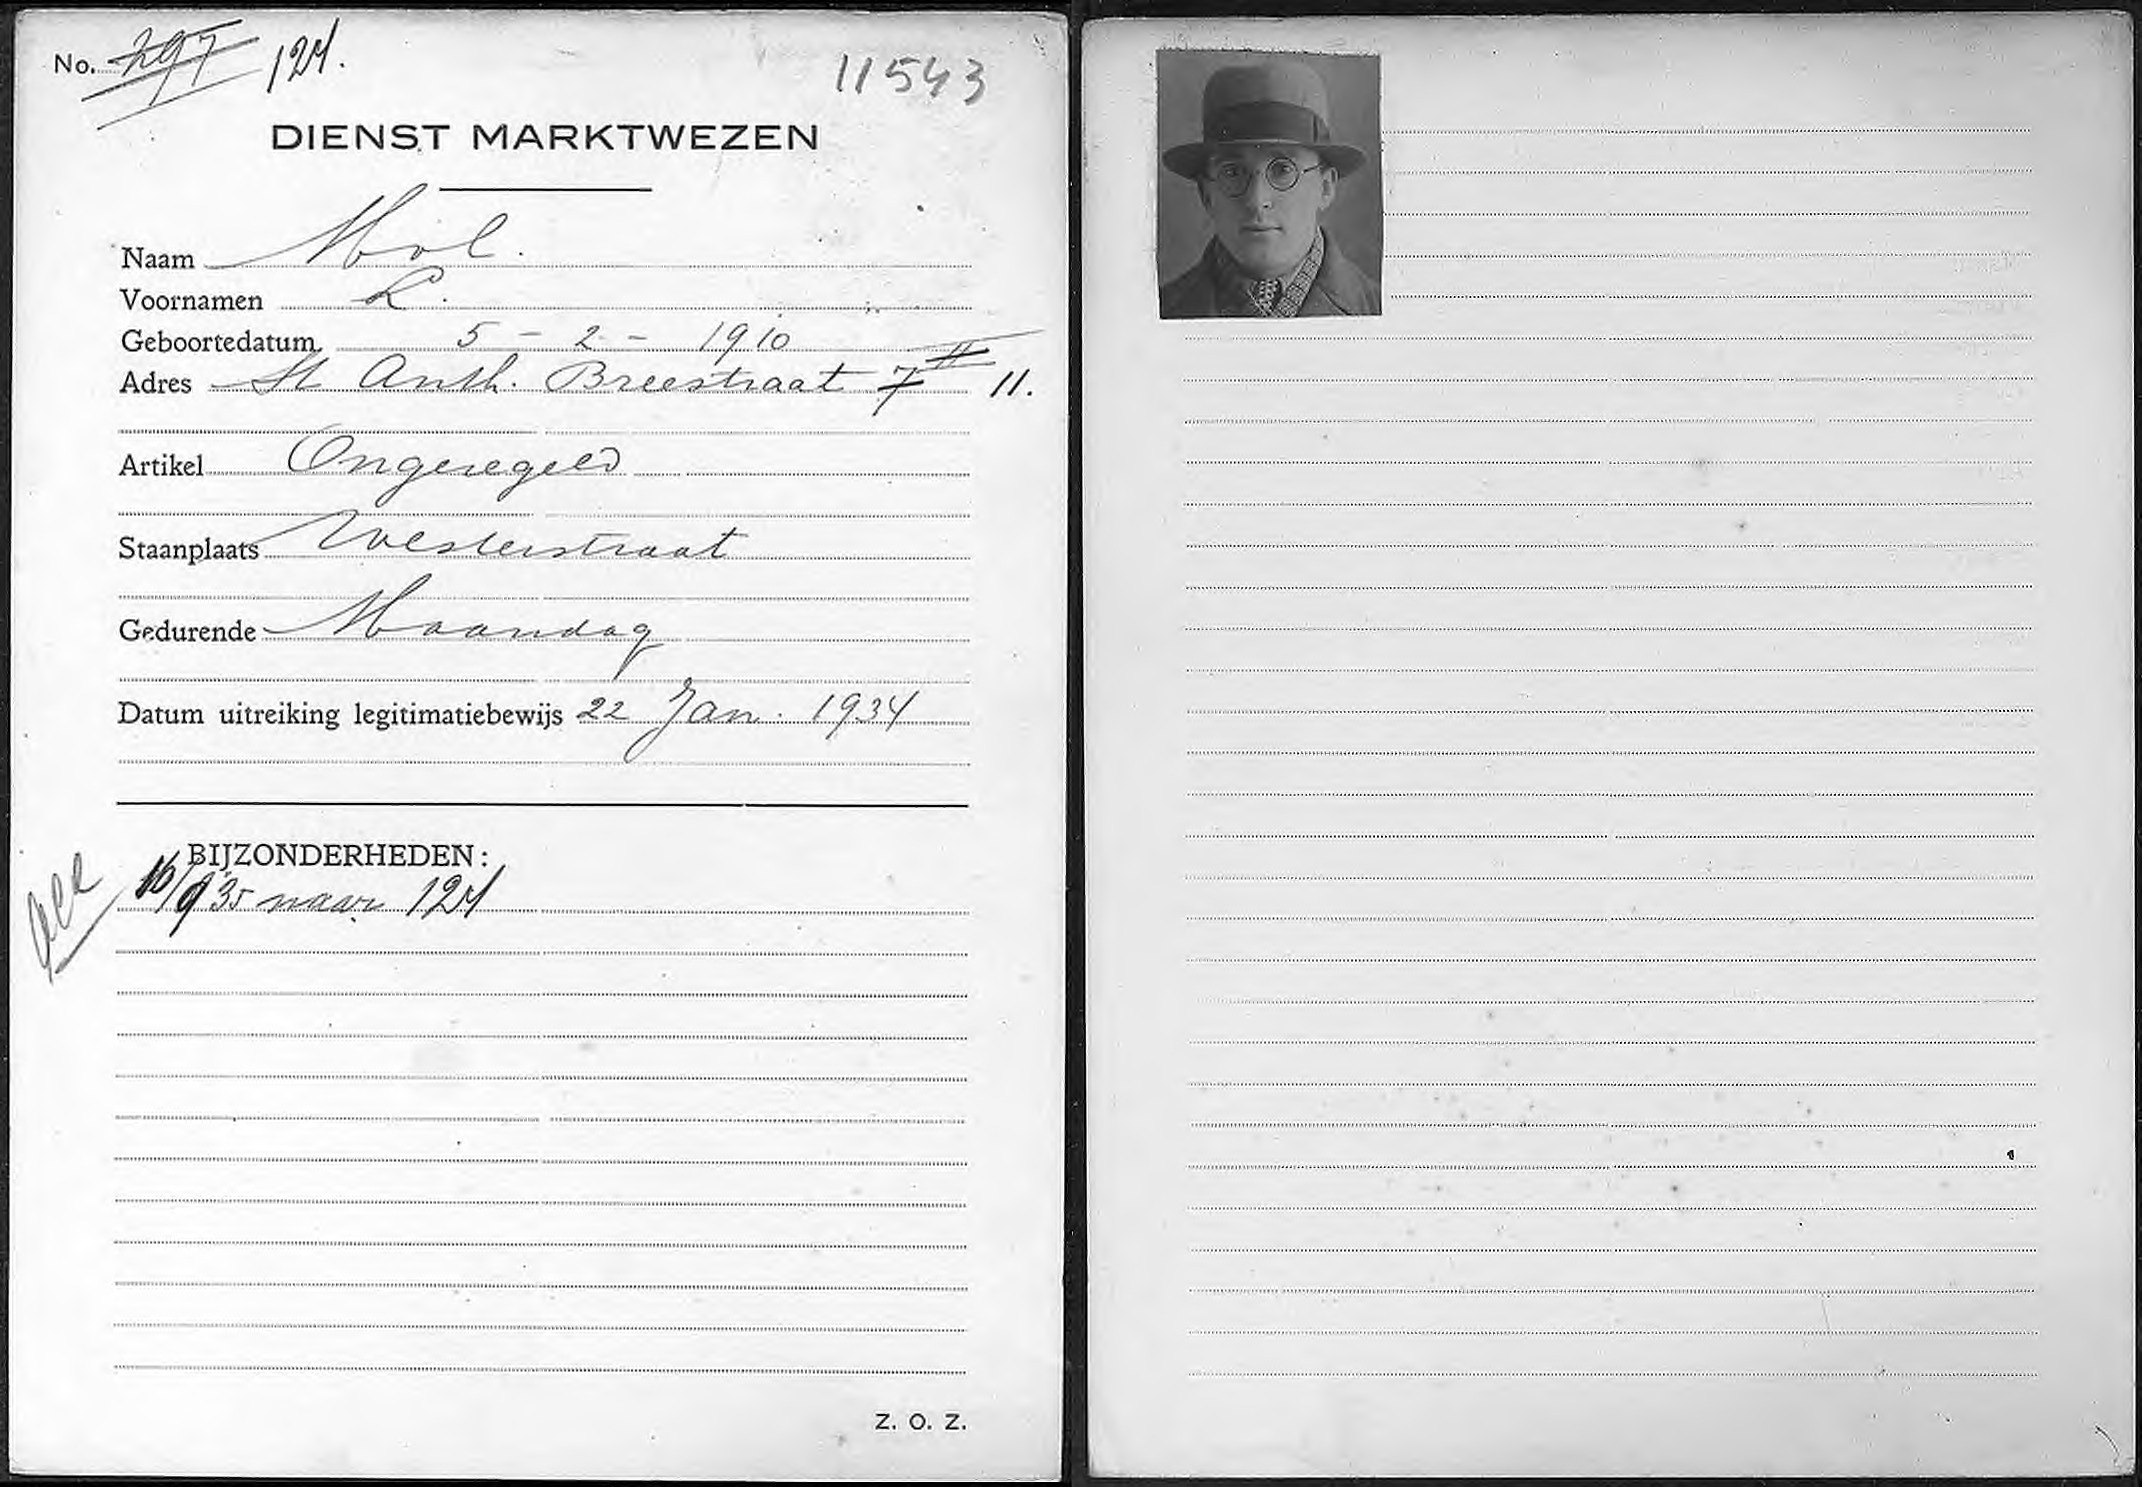 No. 297 124.
11543
DIENST MARKTWEZEN
Naam Mol.
Voornamen L.
Geboortedatum 5 - 2 - 1910
Adres St Anth. Breestraat 7 II 11.
Artikel Ongeregeld
Staanplaats Westerstraat
Gedurende Maandag
Datum uitreiking legitimatiebewijs 22 Jan. 1934
BIJZONDERHEDEN:
16/9 '35 naar 124
Z. O. Z.